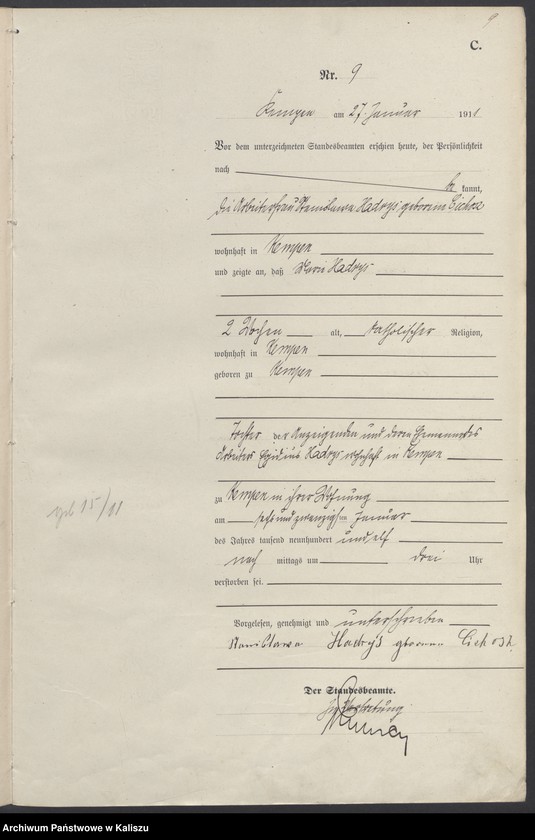 9
C.
Nr. 9
Kempen am 27. Januar 1911
Vor dem unterzeichneten Standesbeamten erschien heute, der Persönlichkeit
nach
be kannt,
die Arbeiterfrau Stanislawa Hadryś geborene Cichosz
wohnhaft in Kempen
und zeigte an, daß Marie Hadryś
2 Wochen alt, katholischer Religion,
wohnhaft in Kempen
geboren zu Kempen
Tochter der Anzeigenden und deren Ehemannes
Arbeiters Egidius Hadryś wohnhaft in Kempen
zu Kempen in ihrer Wohnung
am sechsundzwanzigsten Januar
des Jahres tausend neunhundert und elf
nach mittags um drei Uhr
verstorben sei.
geb 15/11
Vorgelesen, genehmigt und unterschrieben
Stanisława Hadryś geborene Cichosz
Der Standesbeamte.
In Vertretung
Archiwum Państwowe w Kaliszu